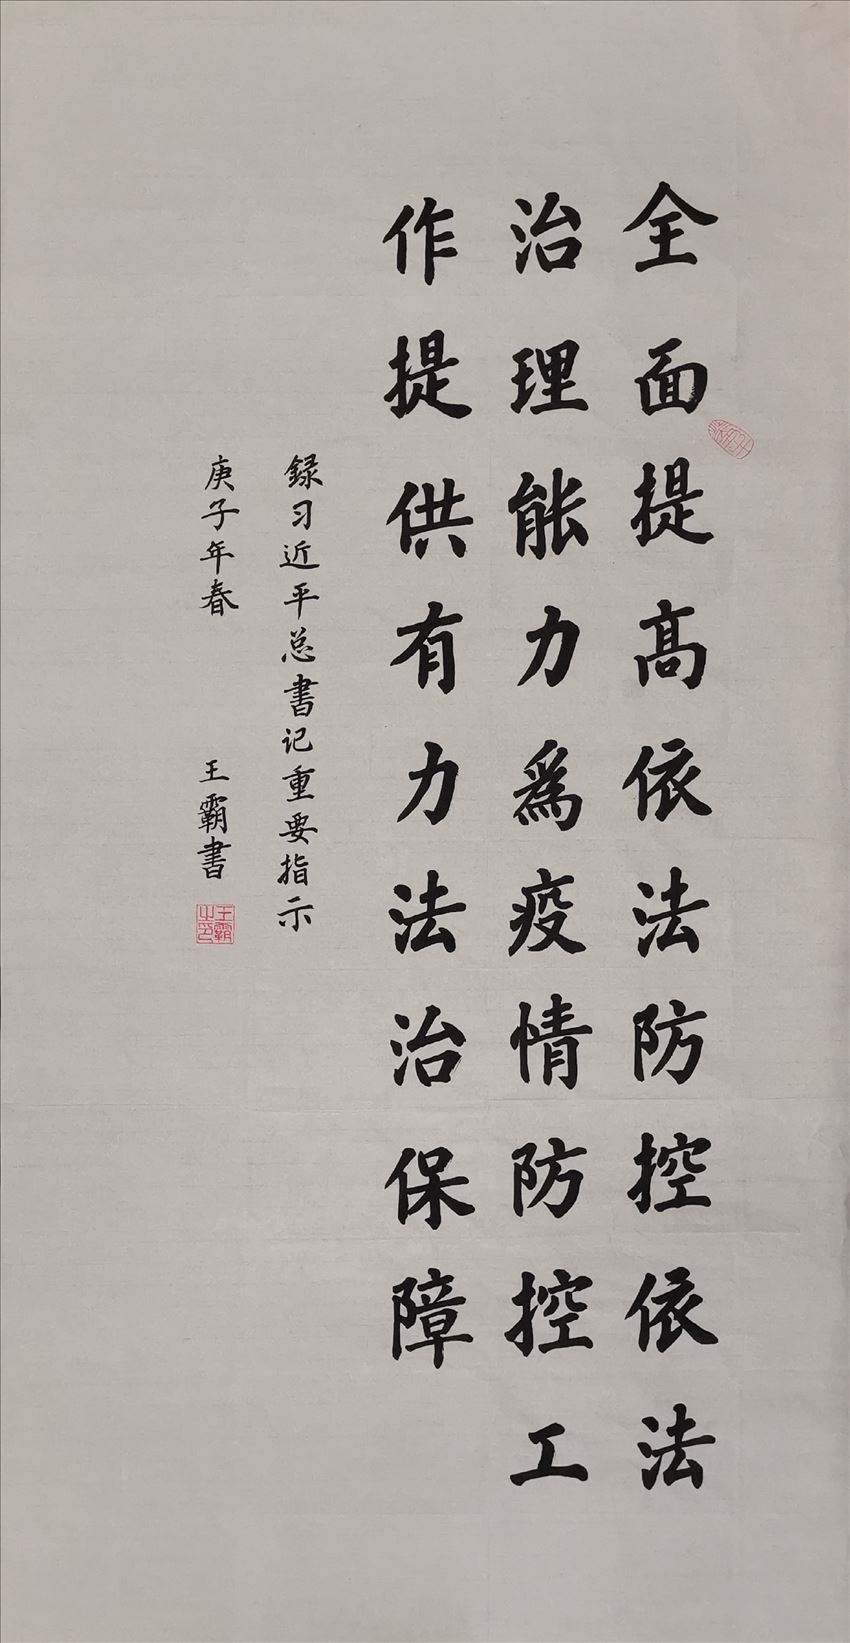 全面提高依法防控依法
治理能力為疫情防控工
作提供有力法治保障
録习近平总書记重要指示
庚子年春 王霸書
王霸之印